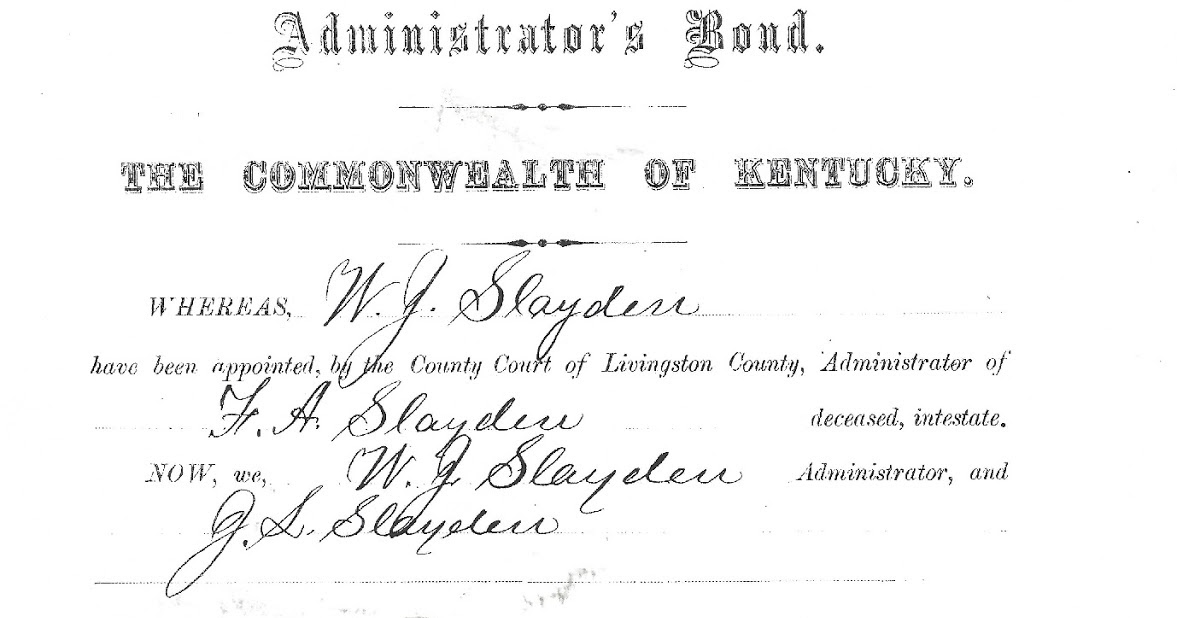 Administrator's Bond.
THE COMMONWEALTH OF KENTUCKY.
WHEREAS, W. J. Slayden
have been appointed, by the County Court of Livingston County, Administrator of
F. A. Slayden deceased, intestate.
NOW, we, W. J. Slayden Administrator, and
J. L. Slayden